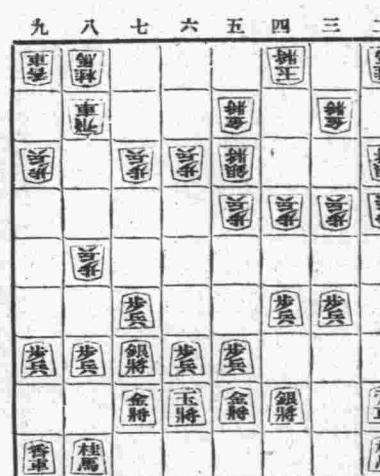 九 八 七 六 五 四 三
香車 桂馬 玉將
飛車 金將 金將
歩兵 歩兵 歩兵 銀將
歩兵 歩兵 歩兵
歩兵
歩兵 歩兵 歩兵
歩兵 歩兵 銀將 歩兵 歩兵
金將 玉將 金將 銀將
香車 桂馬